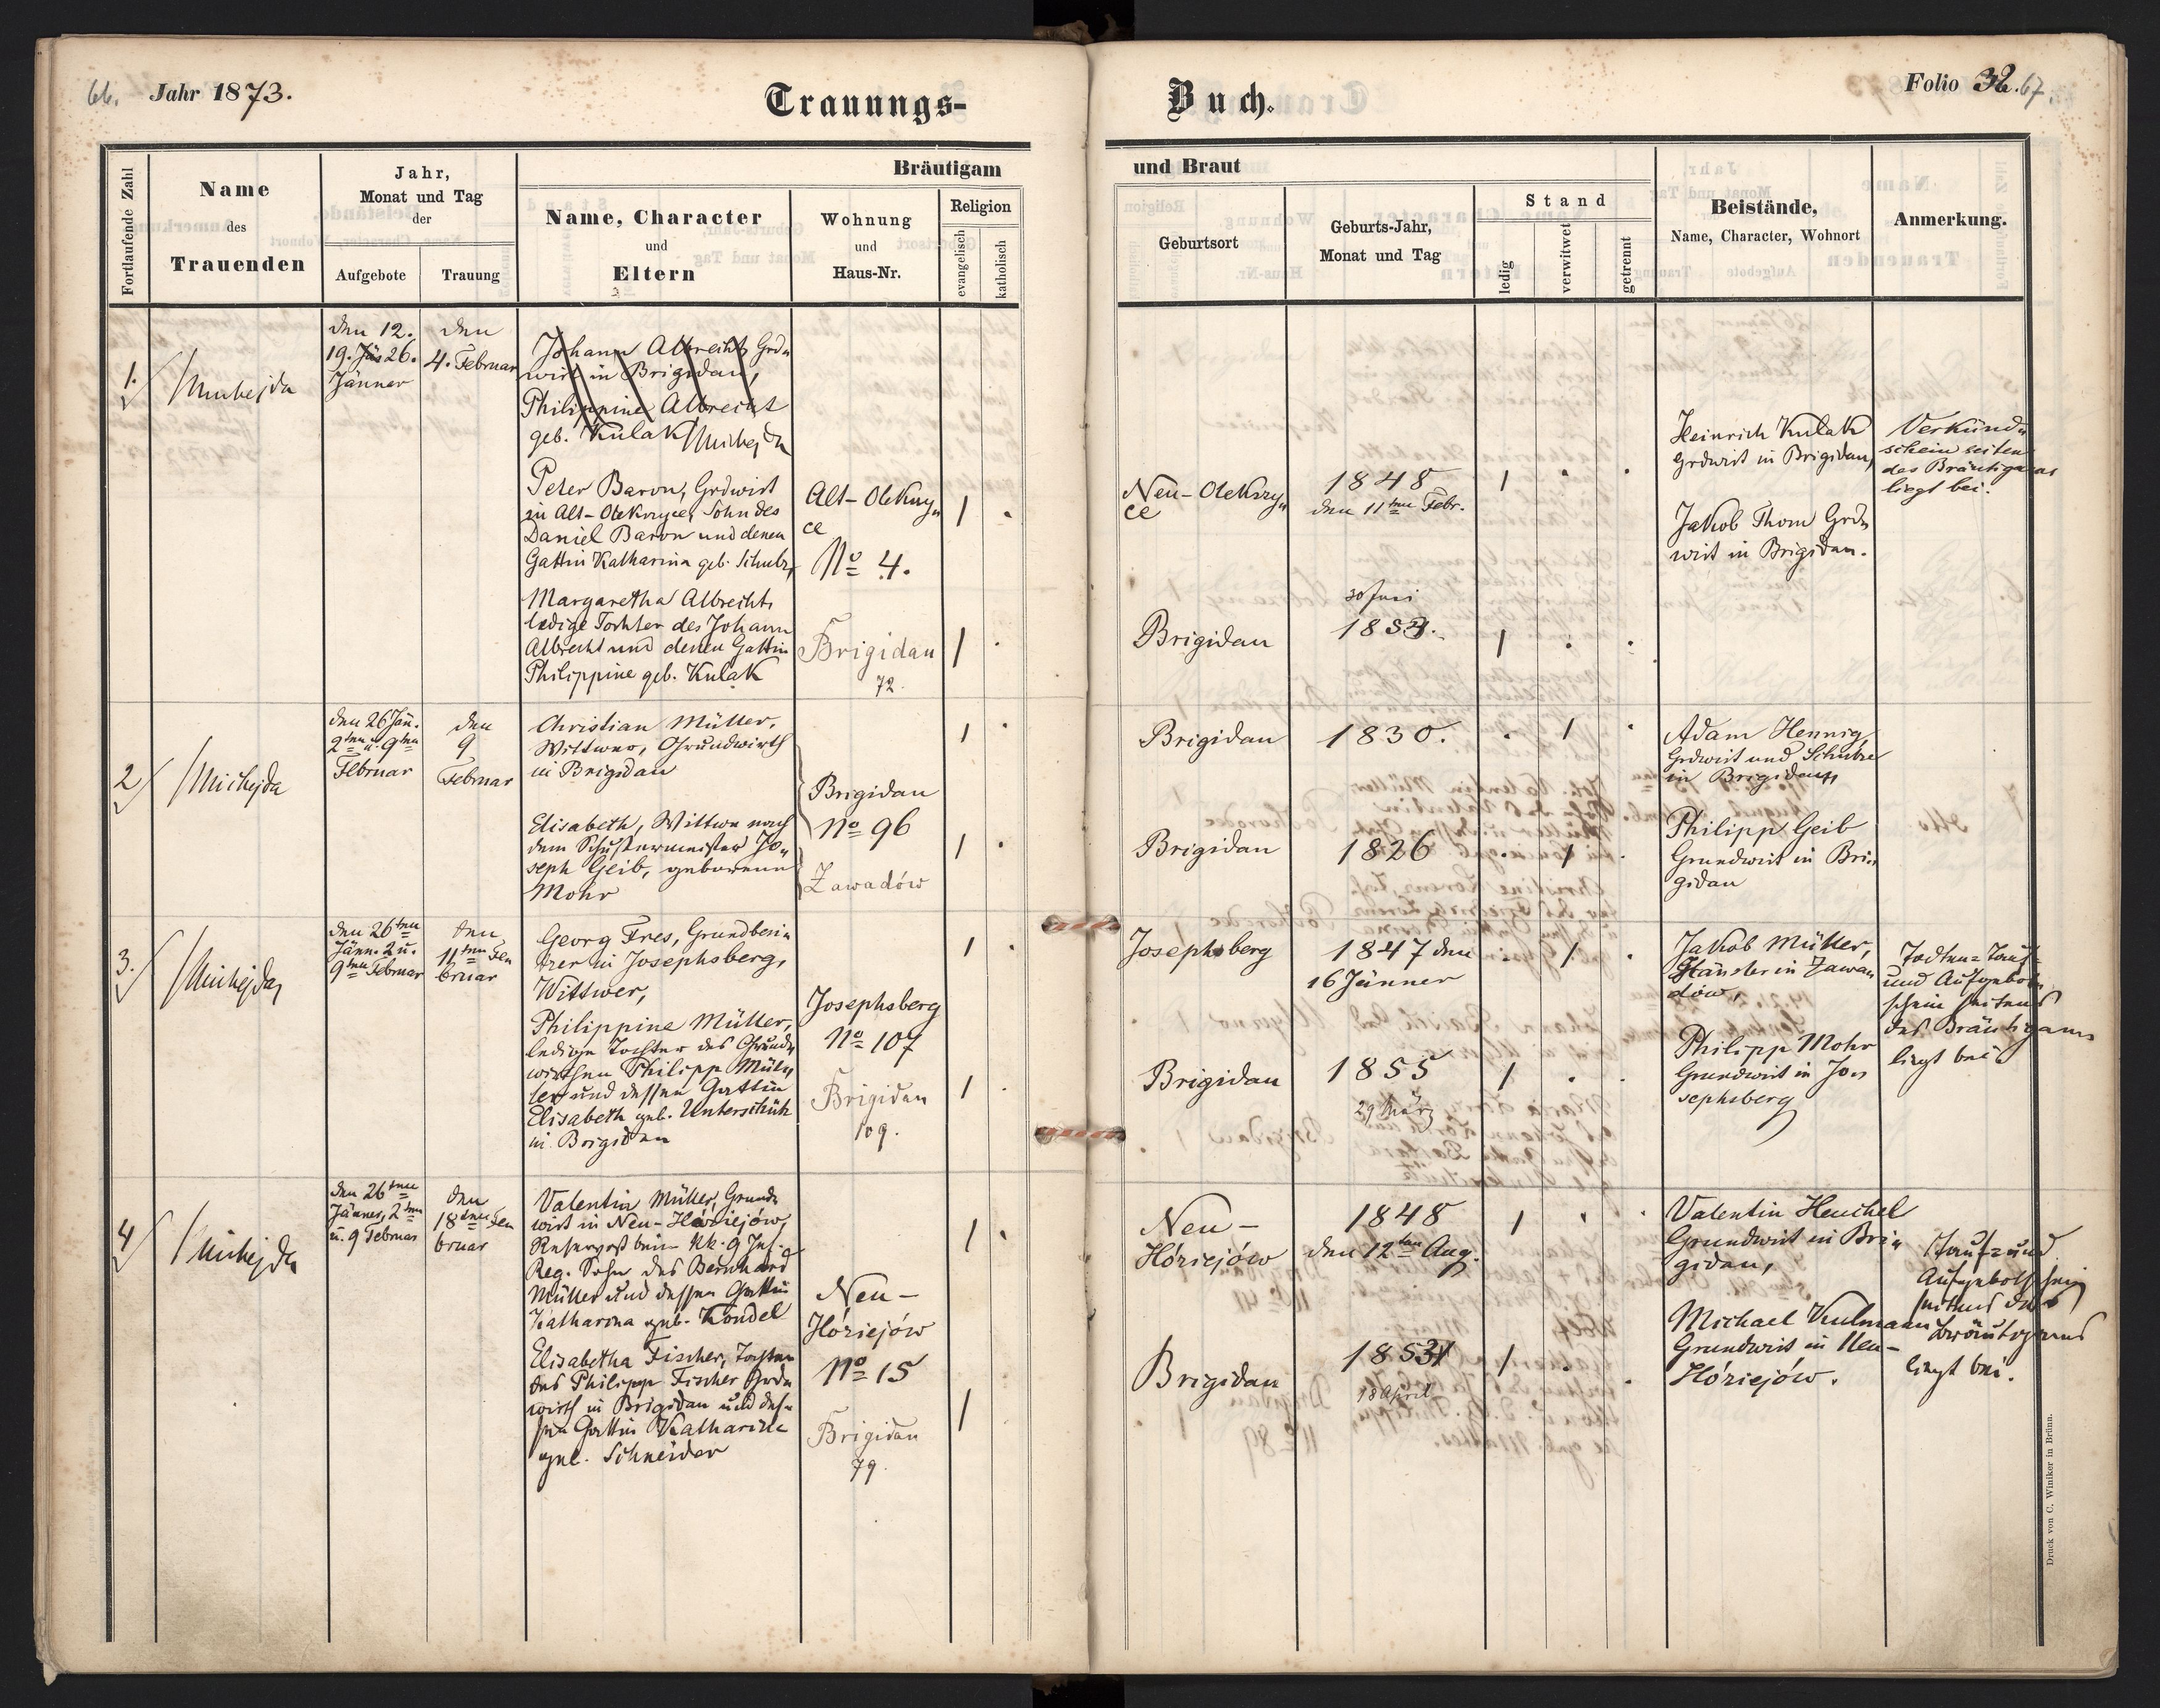 66. Jahr 1873.
Trauungs-
Buch.
Folio 32. 67.
Fortlaufende Zahl
Name
des
Trauenden
Jahr,
Monat und Tag
der
Aufgebote
Trauung
Bräutigam
Name, Character
und
Eltern
Wohnung
und
Haus-Nr.
Religion
evangelisch
katholisch
und Braut
Geburtsort
Geburts-Jahr,
Monat und Tag
Stand
ledig
verwitwet
getrennt
Beistände,
Name, Character, Wohnort
Anmerkung.
1.
Michejda
den 12.
19. 26.
Jänner
den
4. Februar
Johann Albrecht Grd„
wirt in Brigidau,
Philippine Albrecht
geb. Kulak Michejda
Peter Baron, Grdwirt
in Alt-Oleksyce, Sohn des
Daniel Baron und denen
Gattin Katharina geb. Schulz,
Alt-Oleksy„
ce
No 4.
1 .
Neu-Oleksy„
ce
1848
den 11ten Febr.
1 . .
Heinrich Kulak
Grdwirt in Brigidau,
Jakob Thom Grd„
wirt in Brigidau.
Verkünd„
schein seitens
des Bräutigams
liegt bei.
Margaretha Albrecht,
ledige Tochter des Johann
Albrecht und denen Gattin
Philippine geb. Kulak
Brigidau
72.
1 .
Brigidau
30 Juni
1854.
1 . .
2
Michejda
den 26 Jän.
2ten u. 9ten
Februar
den
9
Februar
Christian Müller,
Wittwer, Grundwirth
in Brigidau
Elisabeth, Wittwe nach
dem Schustermeister Jo„
seph Geib, geborene
Mohr
Brigidau
No 96
Zawadów
1 .
1 .
Brigidau
1830.
. 1 .
Brigidau
1826
. 1 .
Adam Hennig,
Grdwirt und Schulze
in Brigidau,
Philipp Geib
Grundwirt in Bri„
gidau
3.
Michejda
den 26ten
Jänn. 2 u.
9ten Februar
den
11ten Fe„
bruar
Georg Fres, Grundbesi„
tzer in Josephsberg,
Wittwer,
Philippine Müller,
ledige Tochter des Grund„
wirthen Philipp Mül„
ler und dessen Gattin
Elisabeth geb. Unterschütz
in Brigidau
Josephsberg
No 107
Brigidau
109.
1 .
1 .
Josephsberg
1847 den
16 Jänner
1 .
Brigidau
1855
29 März
1 . .
Jakob Müller,
Häusler in Zawa„
dów,
Philipp Mohr
Grundwirt in Jo„
sephsberg
Todten= Tauf=
und Aufgebots
schein seitens
des Bräutigams
liegt bei
4
Michejda
den 26ten
Jänner, 2ten
u. 9 Februar
den
18ten Fe„
bruar
Valentin Müller, Grund„
wirt in Neu-Hóziejów,
beim kk. 9 Inf.
Reg. Sohn des Bernhard
Müller und dessen Gattin
Katharina geb. Kondel
Elisabetha Fischer, Tochter
des Philipp Fischer Grd„
wirth in Brigidau und des„
sen Gattin Katharine
geb. Schneider
Neu-
Hóziejów
No 15
Brigidau
79.
1 .
1
Neu-
Hóziejów
1848
den 12ten Aug.
1 . .
Brigidau
1853
18 April
1 . .
Valentin Heuchel
Grundwirt in Bri„
gidau,
Michael Kulmann
Grundwirt in Neu-
Hóziejów.
Tauf= und
Aufgebotschein
seitens des
Bräutigams
liegt bei.
Druck von C. Winiker in Brünn.